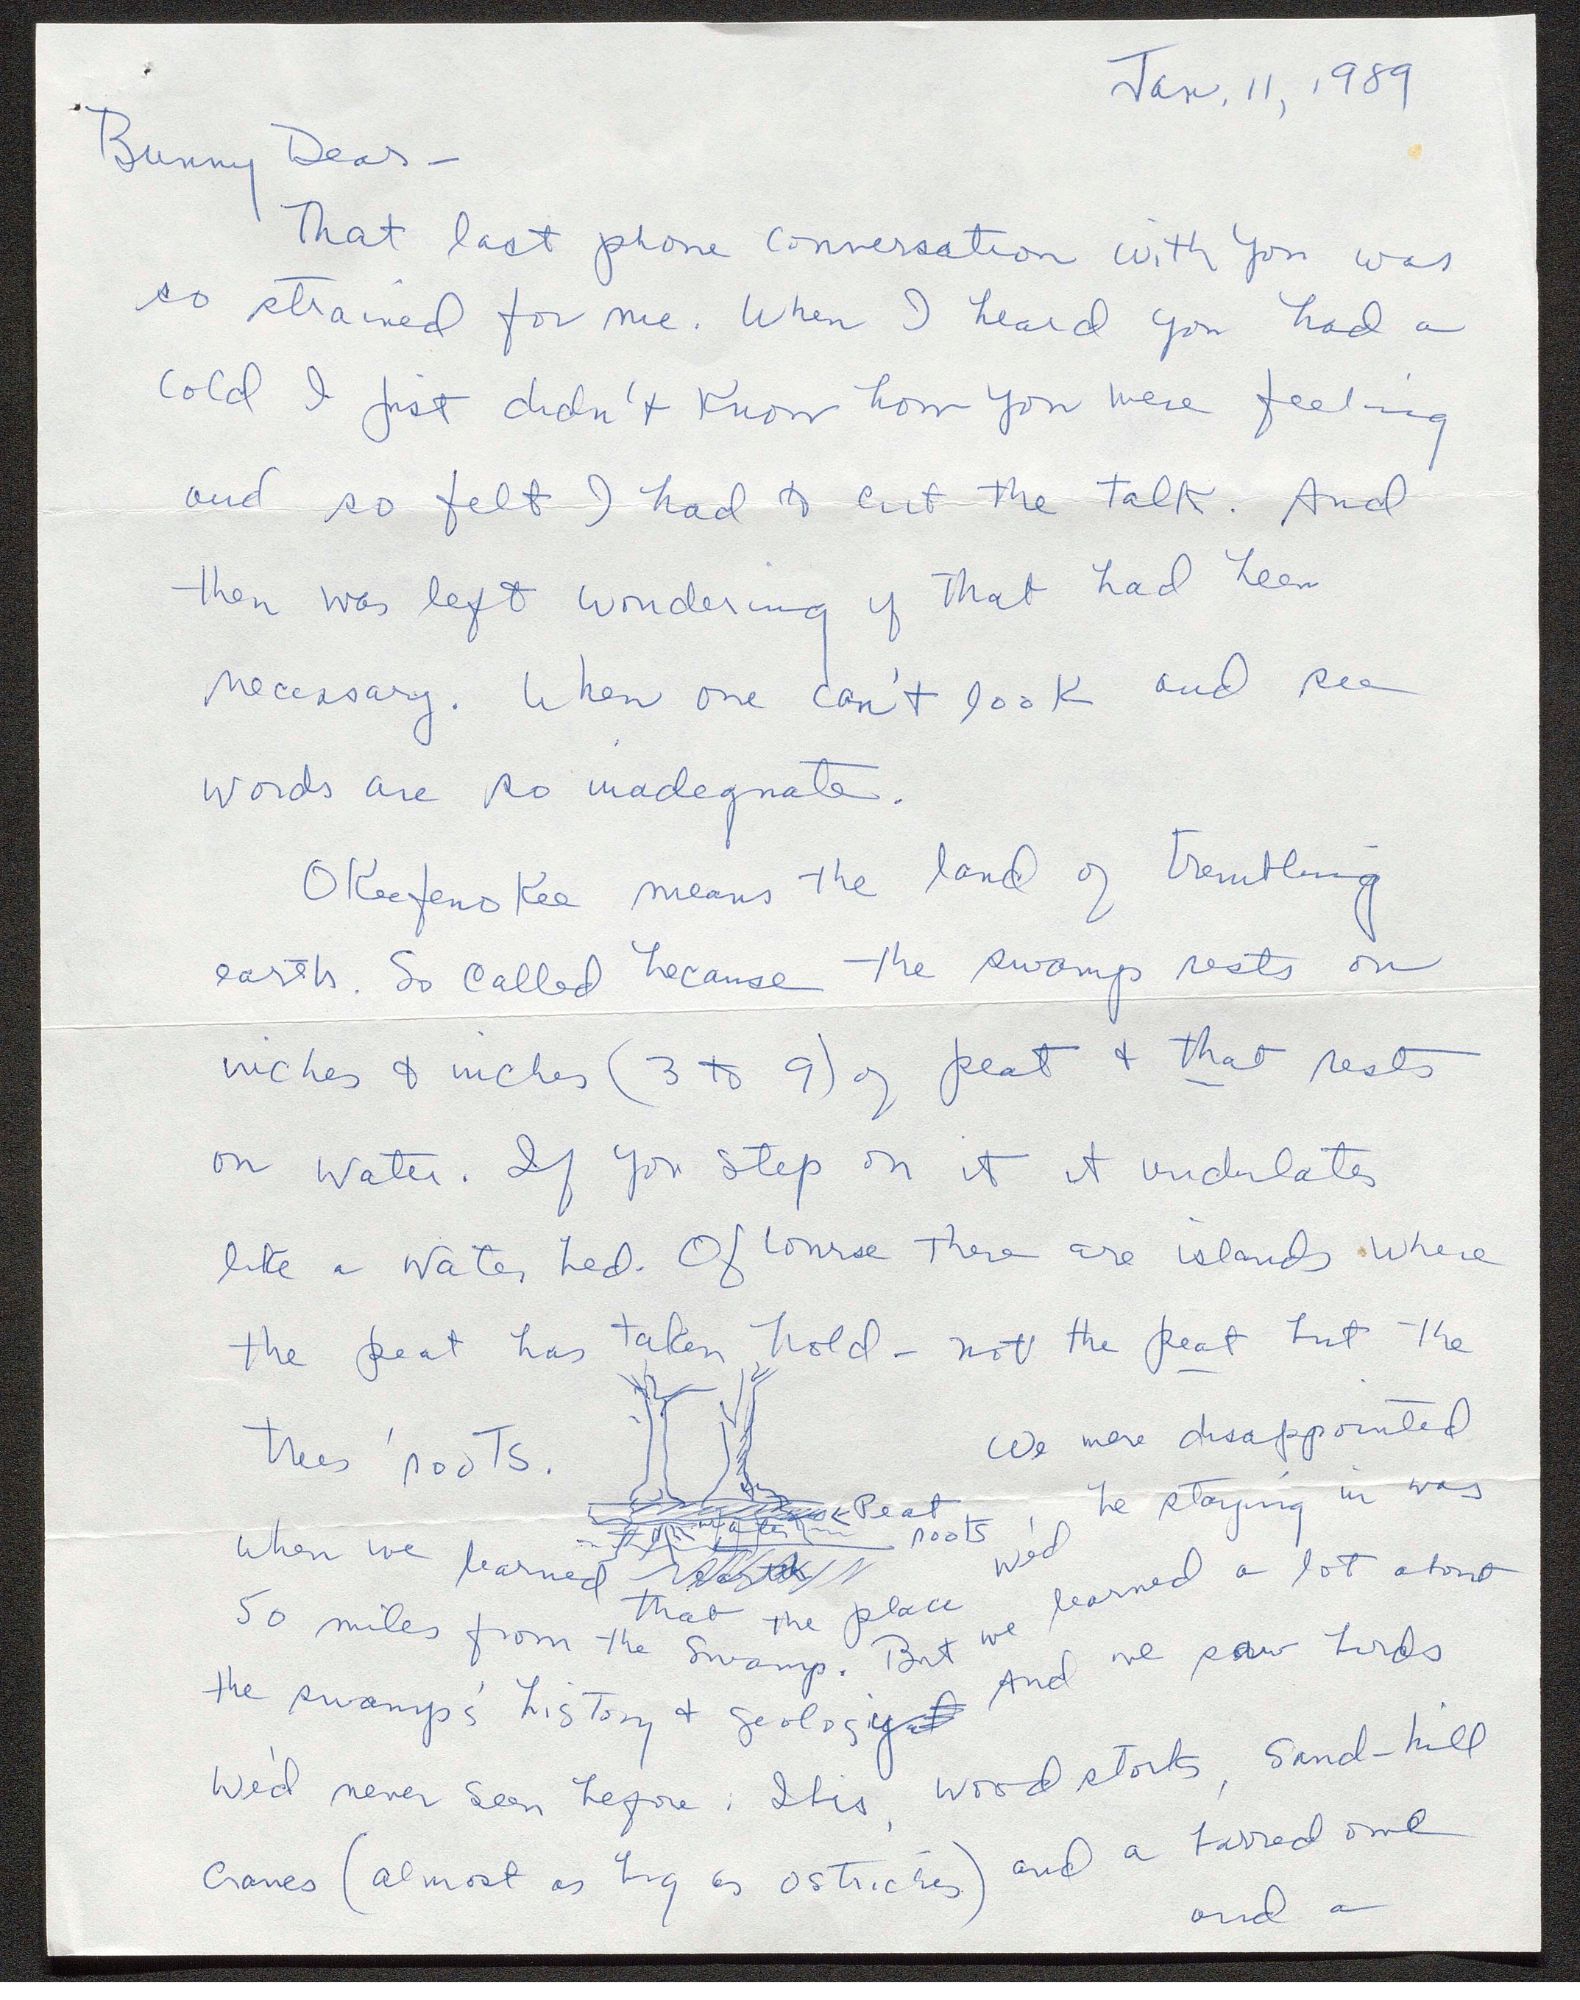 Jan. 11, 1989
Bunny Dear –
That last phone conversation with you was
so strained for me. When I heard you had a
cold I just didn't know how you were feeling
and so felt I had to cut the talk. And
then was left wondering if that had been
necessary. When one can't look and see
words are so inadequate.
Okeefenokee means the land of trembling
earth. So called because the swamp rests on
inches & inches (3 to 9) of peat & that rests
on water. If you step on it it undulates
like a water bed. Of course there are islands where
the peat has taken hold – not the peat but the
trees' roots. We were disappointed
Peat
water
roots
earth
when we learned that the place we'd be staying in was
50 miles from the swamp. But we learned a lot about
the swamp's history & geology And we saw birds
We'd never seen before. Ibis, wood storks, Sand-hill
cranes (almost as big as ostriches) and a barred owl
and a